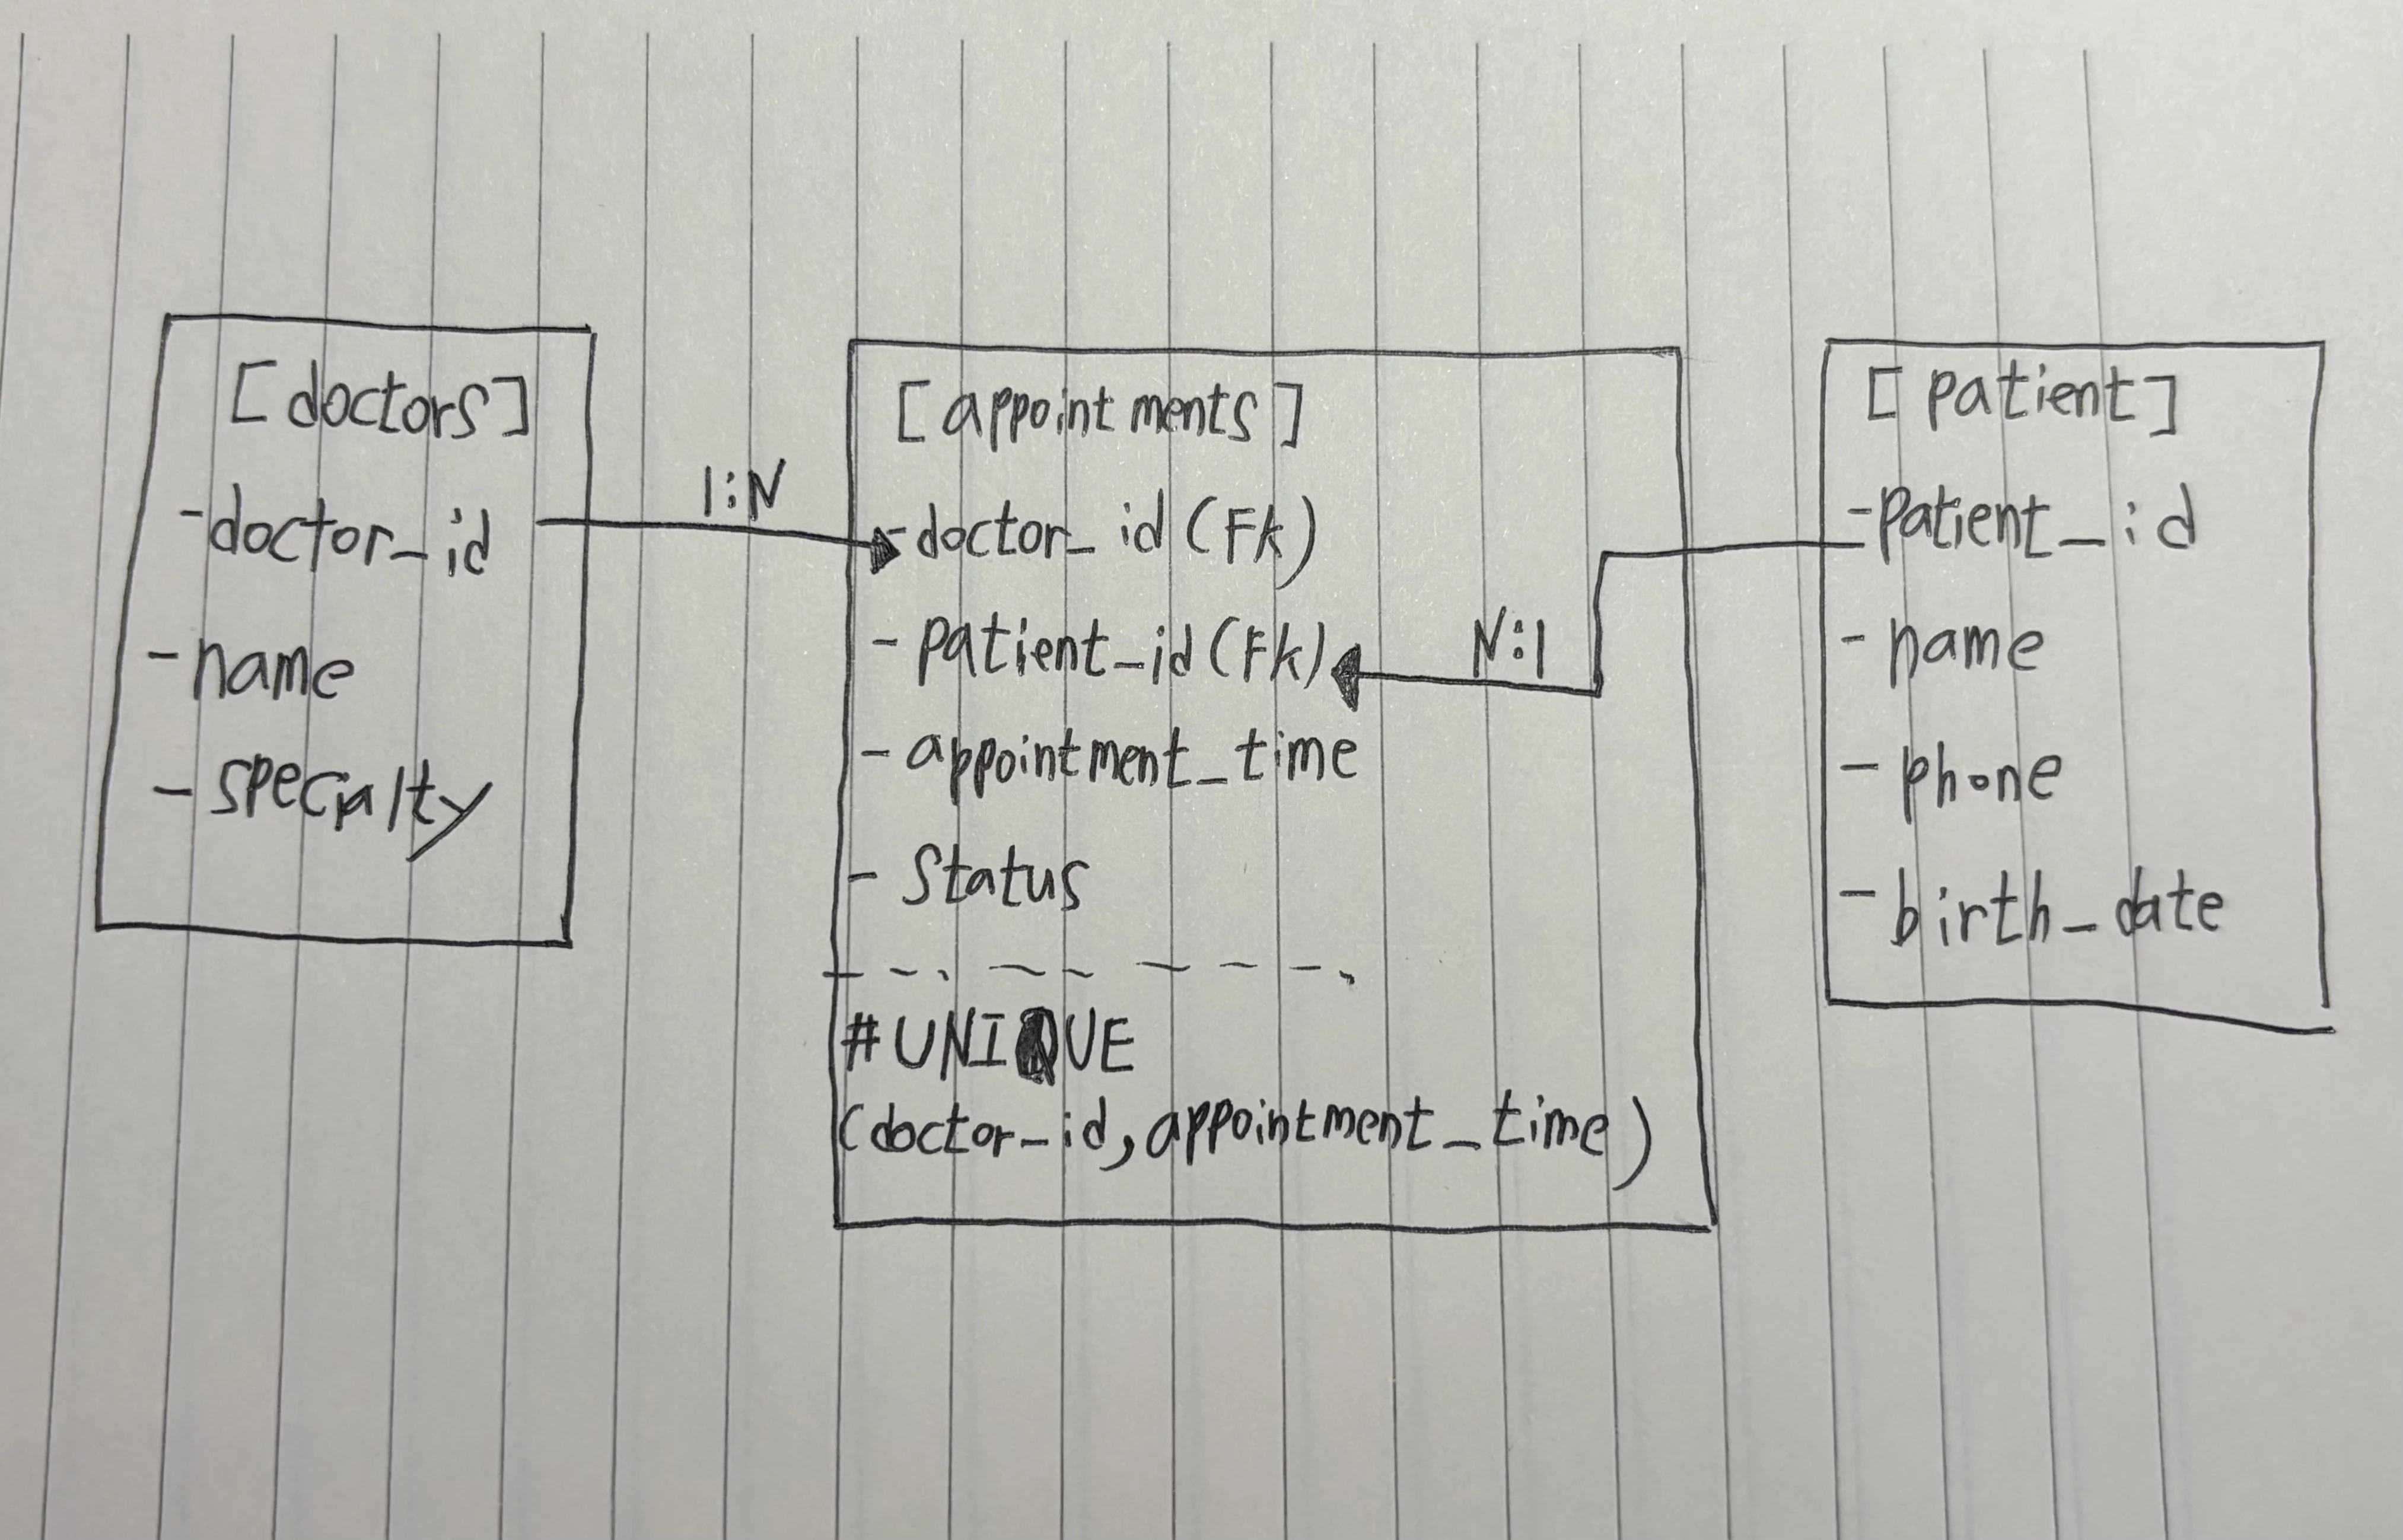 [doctors]
-doctor_id
-name
-specialty
1:N
[appointments]
-doctor_id (Fk)
-patient_id (Fk)
-appointment_time
-Status
#UNIQUE
(doctor_id, appointment_time)
N:1
[patient]
-patient_id
-name
-phone
-birth_date